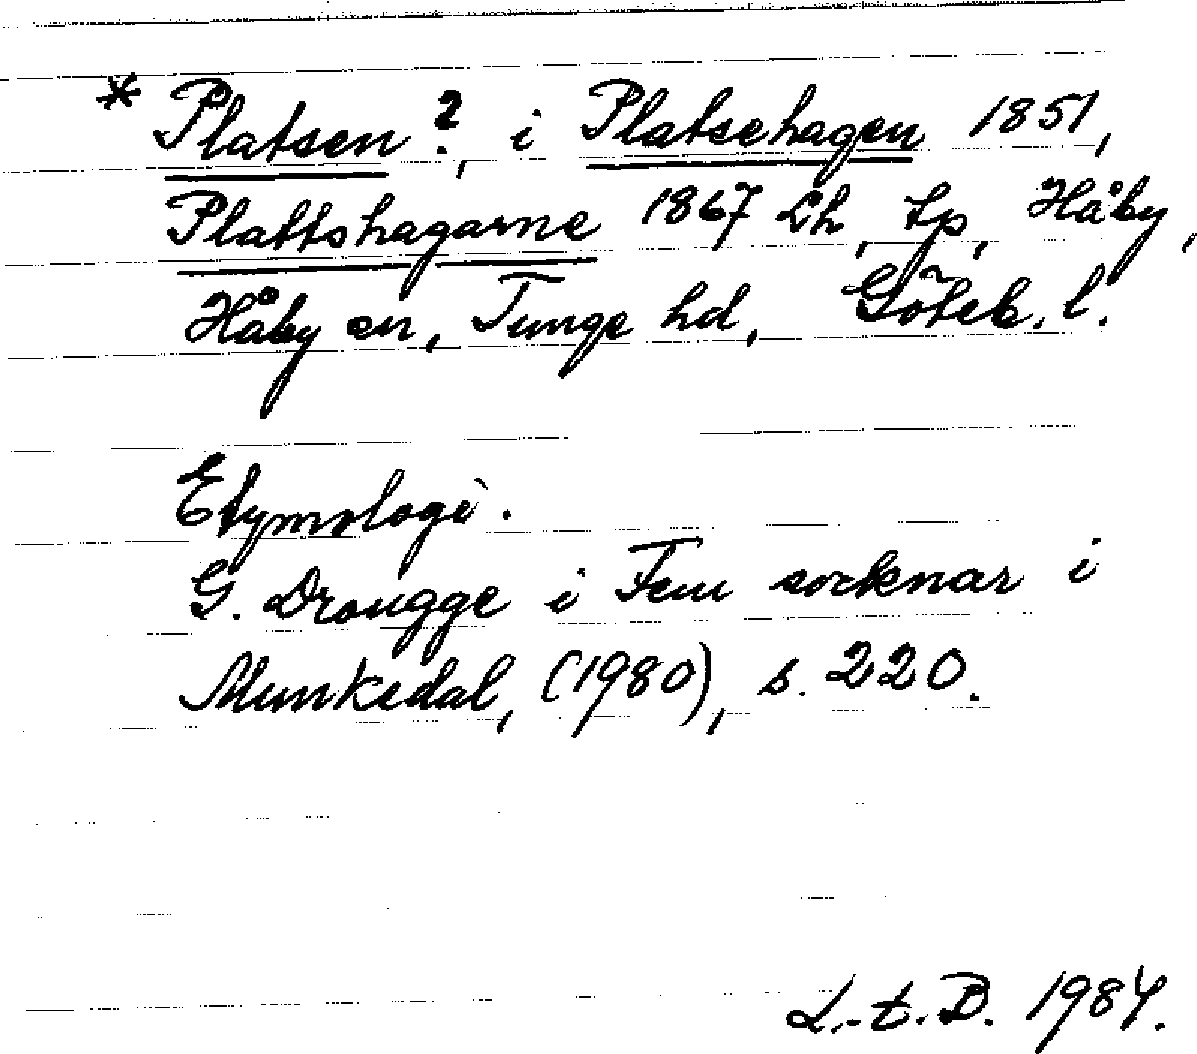 * Platsen?, i Platsehagen 1851,
Plattshagarne 1867 Lh, tp, Håby,
Håby sn, Tunge hd, Göteb. l.
Etymologi.
G. Drougge i Fem socknar i
Munkedal, (1980), s. 220.
L.-t. B. 1984.